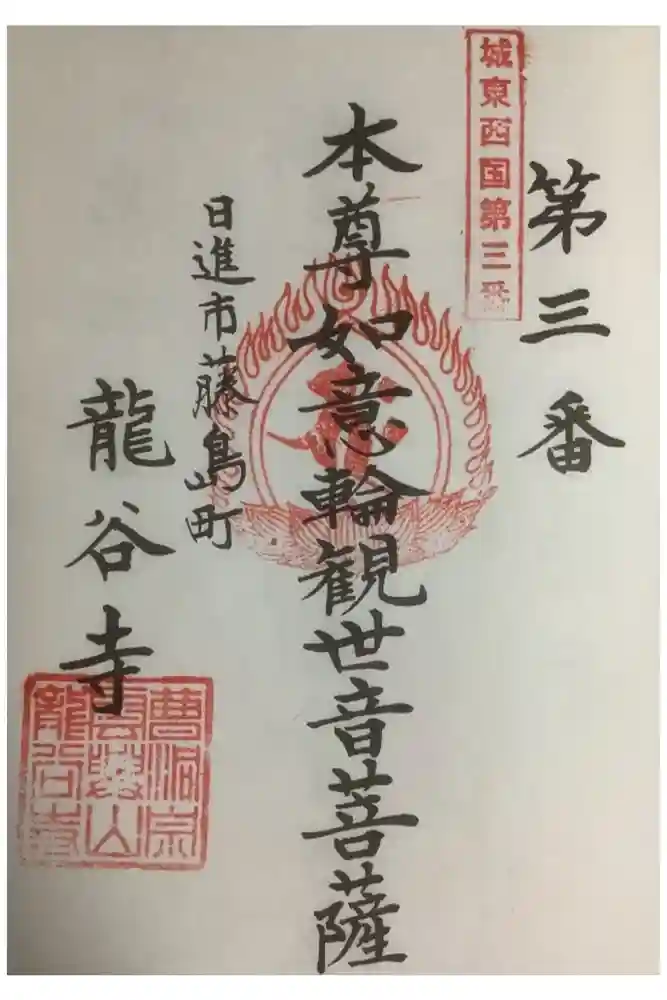 城東西国第三番
第三番
本尊如意輪観世音菩薩
日進市藤島町
龍谷寺
曹洞宗
雲興山
龍谷寺